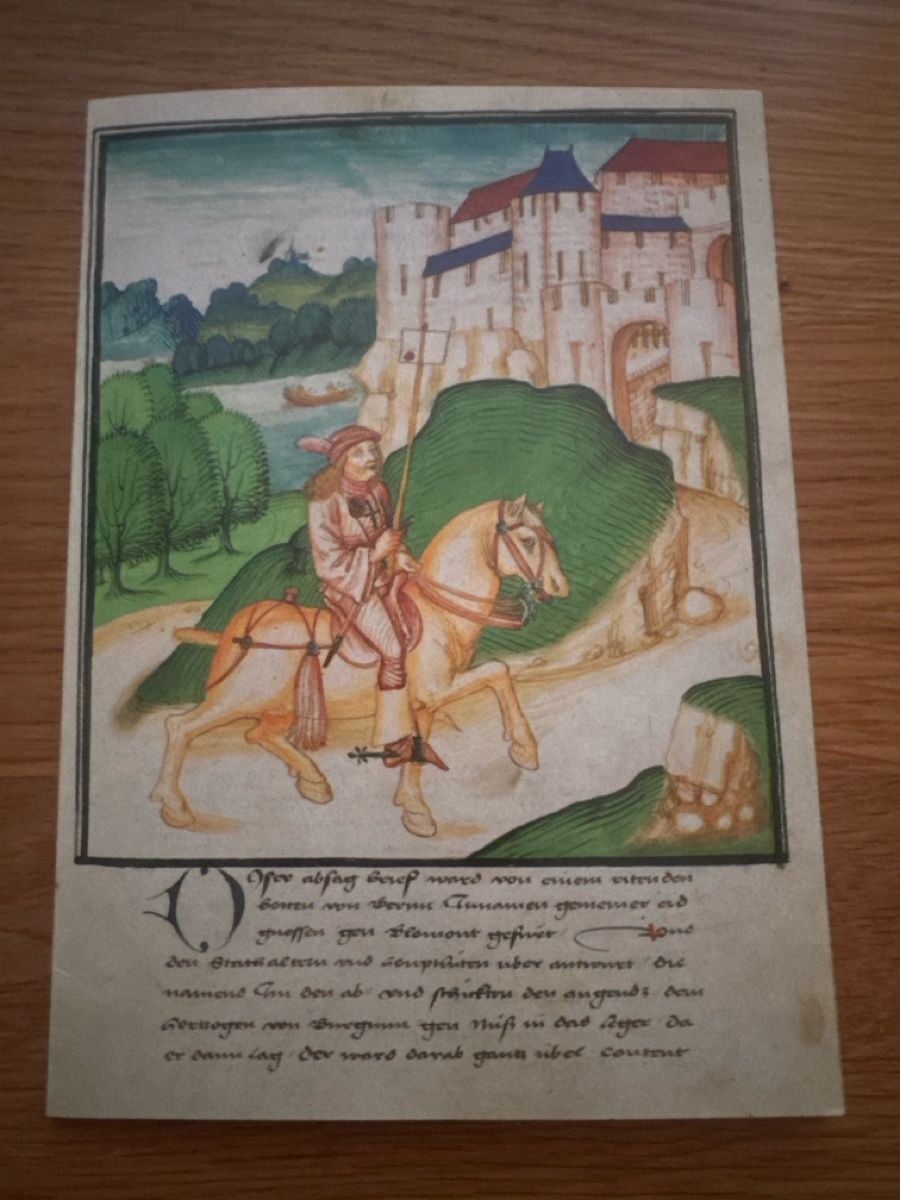 Diser absag brief ward von einem ritenden
botten von Bernn Innamen gemeiner eid
gnossen gen Blomont gefürt vnd
den Stathaltern vnd houptlüten über antwurt die
namend In den ab vnd schickten den angends dem
hertzogen von Burgunn gen Nüß in das leger da
er dann lag Der ward darab gantz übel content